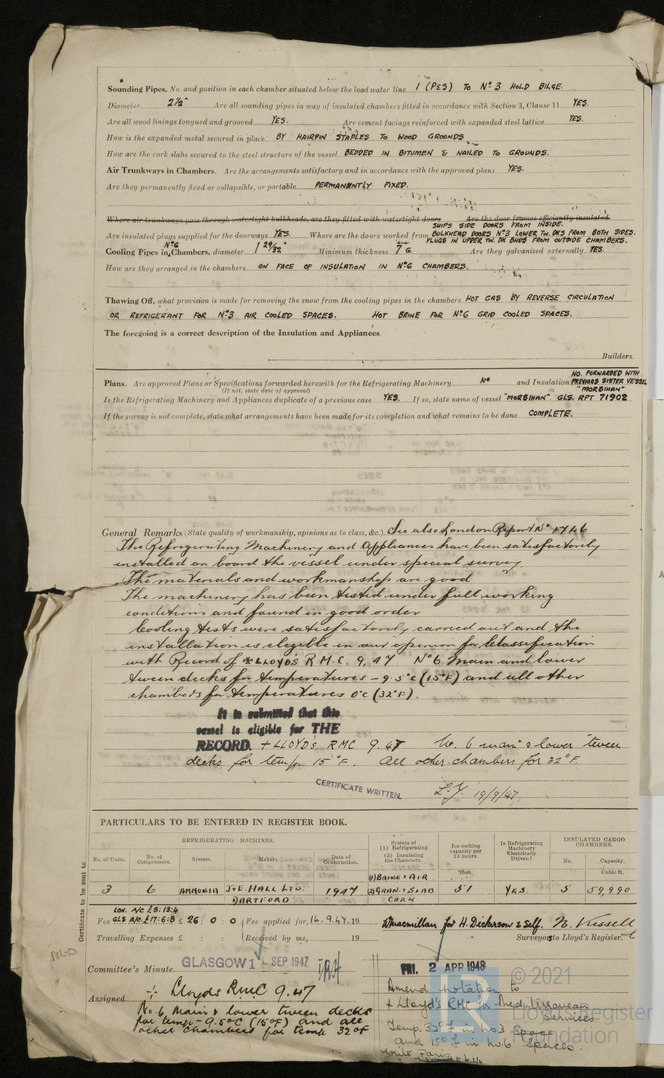 Sounding Pipes, No. and position in each chamber situated below the load water line 1 (PES) TO Nº3 HOLD BILGE.
Diameter 2½" Are all sounding pipes in way of insulated chambers fitted in accordance with Section 3, Clause 11 YES.
Are all wood linings tongued and grooved YES. Are cement facings reinforced with expanded steel lattice YES.
How is the expanded metal secured in place BY HAIRPIN STAPLES TO WOOD GROUNDS
How are the cork slabs secured to the steel structure of the vessel BEDDED IN BITUMEN & NAILED TO GROUNDS.
Air Trunkways in Chambers. Are the arrangements satisfactory and in accordance with the approved plans YES.
Are they permanently fixed or collapsible, or portable PERMANENTLY FIXED.
Where air trunkways pass through watertight bulkheads, are they fitted with watertight doors Are the door frames efficiently insulated
SHIPS SIDE DOORS FROM INSIDE.
Are insulated plugs supplied for the doorways YES. Where are the doors worked from BULKHEAD DOORS Nº3 LOWER TW. DKS FROM BOTH SIDES.
PLUGS IN UPPER TW. DK BHDS FROM OUTSIDE CHAMBERS.
Cooling Pipes in Nº6 Chambers, diameter 1 29/32" Minimum thickness 7 G Are they galvanised externally YES.
How are they arranged in the chambers ON FACE OF INSULATION IN Nº6 CHAMBERS.
Thawing Off, what provision is made for removing the snow from the cooling pipes in the chambers HOT GAS BY REVERSE CIRCULATION
OR REFRIGERANT FOR Nº3 AIR COOLED SPACES. HOT BRINE FOR Nº6 GRID COOLED SPACES.
The foregoing is a correct description of the Insulation and Appliances.
Builders.
Plans. Are approved Plans or Specifications forwarded herewith for the Refrigerating Machinery Nº and Insulation NO. FORWARDED WITH PREVIOUS SISTER VESSEL
(If not, state date of approval) "MORBIHAN"
Is the Refrigerating Machinery and Appliances duplicate of a previous case YES. If so, state name of vessel "MORBIHAN" GLS. RPT 71902
If the survey is not complete, state what arrangements have been made for its completion and what remains to be done COMPLETE.
General Remarks (State quality of workmanship, opinions as to class, &c.) See also London Report Nº 1746
The Refrigerating Machinery and Appliances have been satisfactorily
installed on board the vessel under special survey
The materials and workmanship are good
The machinery has been tested under full working
conditions and found in good order
Cooling tests were satisfactorily carried out and the
installation is eligible in our opinion for Classification
with Record of + LLOYD'S R.M.C. 9,47 Nº6 Main and lower
tween decks for temperatures - 9.5°C (15°F) and all other
chambers for temperatures 0°C (32°F).
It is submitted that this
vessel is eligible for THE
RECORD. + LLOYD'S RMC 9.47 No. 6 main & lower 'tween
decks for temp. 15°F. All other chambers for 32°F.
CERTIFICATE WRITTEN
19/9/47.
PARTICULARS TO BE ENTERED IN REGISTER BOOK.
REFRIGERATING MACHINES.
No. of Units. No. of Compressors. System. Makers. Date of Construction. System of (1) Refrigerating (2) Insulating the Chambers. Ice melting capacity per 24 hours. Tons. Is Refrigerating Machinery Electrically Driven? INSULATED CARGO CHAMBERS. No. Capacity. Cubic ft.
3 6 AMMONIA J & E HALL LTD. DARTFORD 1947 (1) BRINE & AIR (2) GRAN. & SLAB CORK 51 YES. 5 59,990
Certificate to be sent to
LON. A/C £8:13:4
GLS A/C £17:6:8
Fee £ 26 : 0 : 0 Fee applied for, 16.9.47 19 D Macmillan for H. Dickerson & Self.
Travelling Expenses £ : : Received by me, 19 Surveyors to Lloyd's Register.
Committee's Minute GLASGOW SEP 1947
FRI. 2 APR 1948
Assigned + Lloyds RMC 9.47
No. 6 Main & lower tween decks
for temp - 9.5°C (15°F) and all
other chambers for temp 32°F
Amend notation to
+ Lloyd's RMC for Mediterranean
Services
Temp. 32°F in No3 Space
and 15°F in No.6 Spaces.
Write Paris
© 2021
Lloyd's Register
Foundation